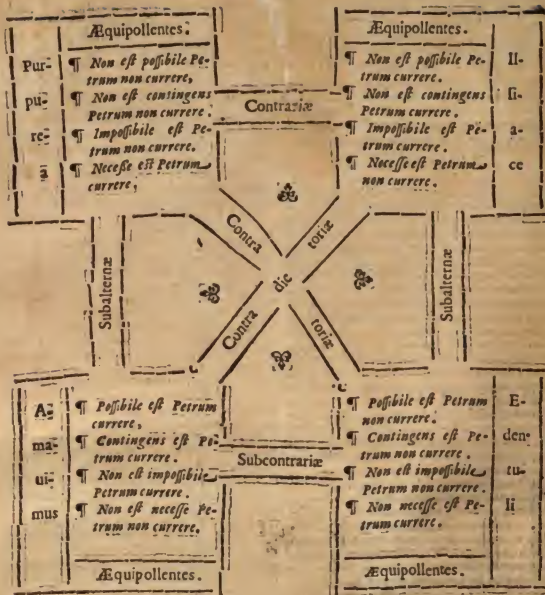 Æquipollentes.
Pur-
pu-
re-
a
¶ Non eſt poſſibile Pe-
trum non currere,
¶ Non eſt contingens
Petrum non currere.
¶ Impoſſibile eſt Pe-
trum non currere.
¶ Neceſſe eſt Petrum
currere,
Contrariæ
Æquipollentes.
¶ Non eſt poſſibile Pe-
trum currere.
¶ Non eſt contingens
Petrum currere.
¶ Impoſſibile eſt Pe-
trum currere.
¶ Neceſſe eſt Petrum
non currere.
Il-
li-
a-
ce
Subalternæ
Contra
toriæ
dic
Contra
toriæ
Subalternæ
A-
ma-
ui-
mus
¶ Poſſibile eſt Petrum
currere,
¶ Contingens eſt Pe-
trum currere.
¶ Non eſt impoſſibile
Petrum currere.
¶ Non eſt neceſſe Pe-
trum non currere.
Æquipollentes.
Subcontrariæ
¶ Poſſibile eſt Petrum
non currere.
¶ Contingens eſt Pe-
trum non currere.
¶ Non eſt impoſſibile
Petrum non currere.
¶ Non neceſſe eſt Pe-
trum currere.
E-
den-
tu-
li
Æquipollentes.